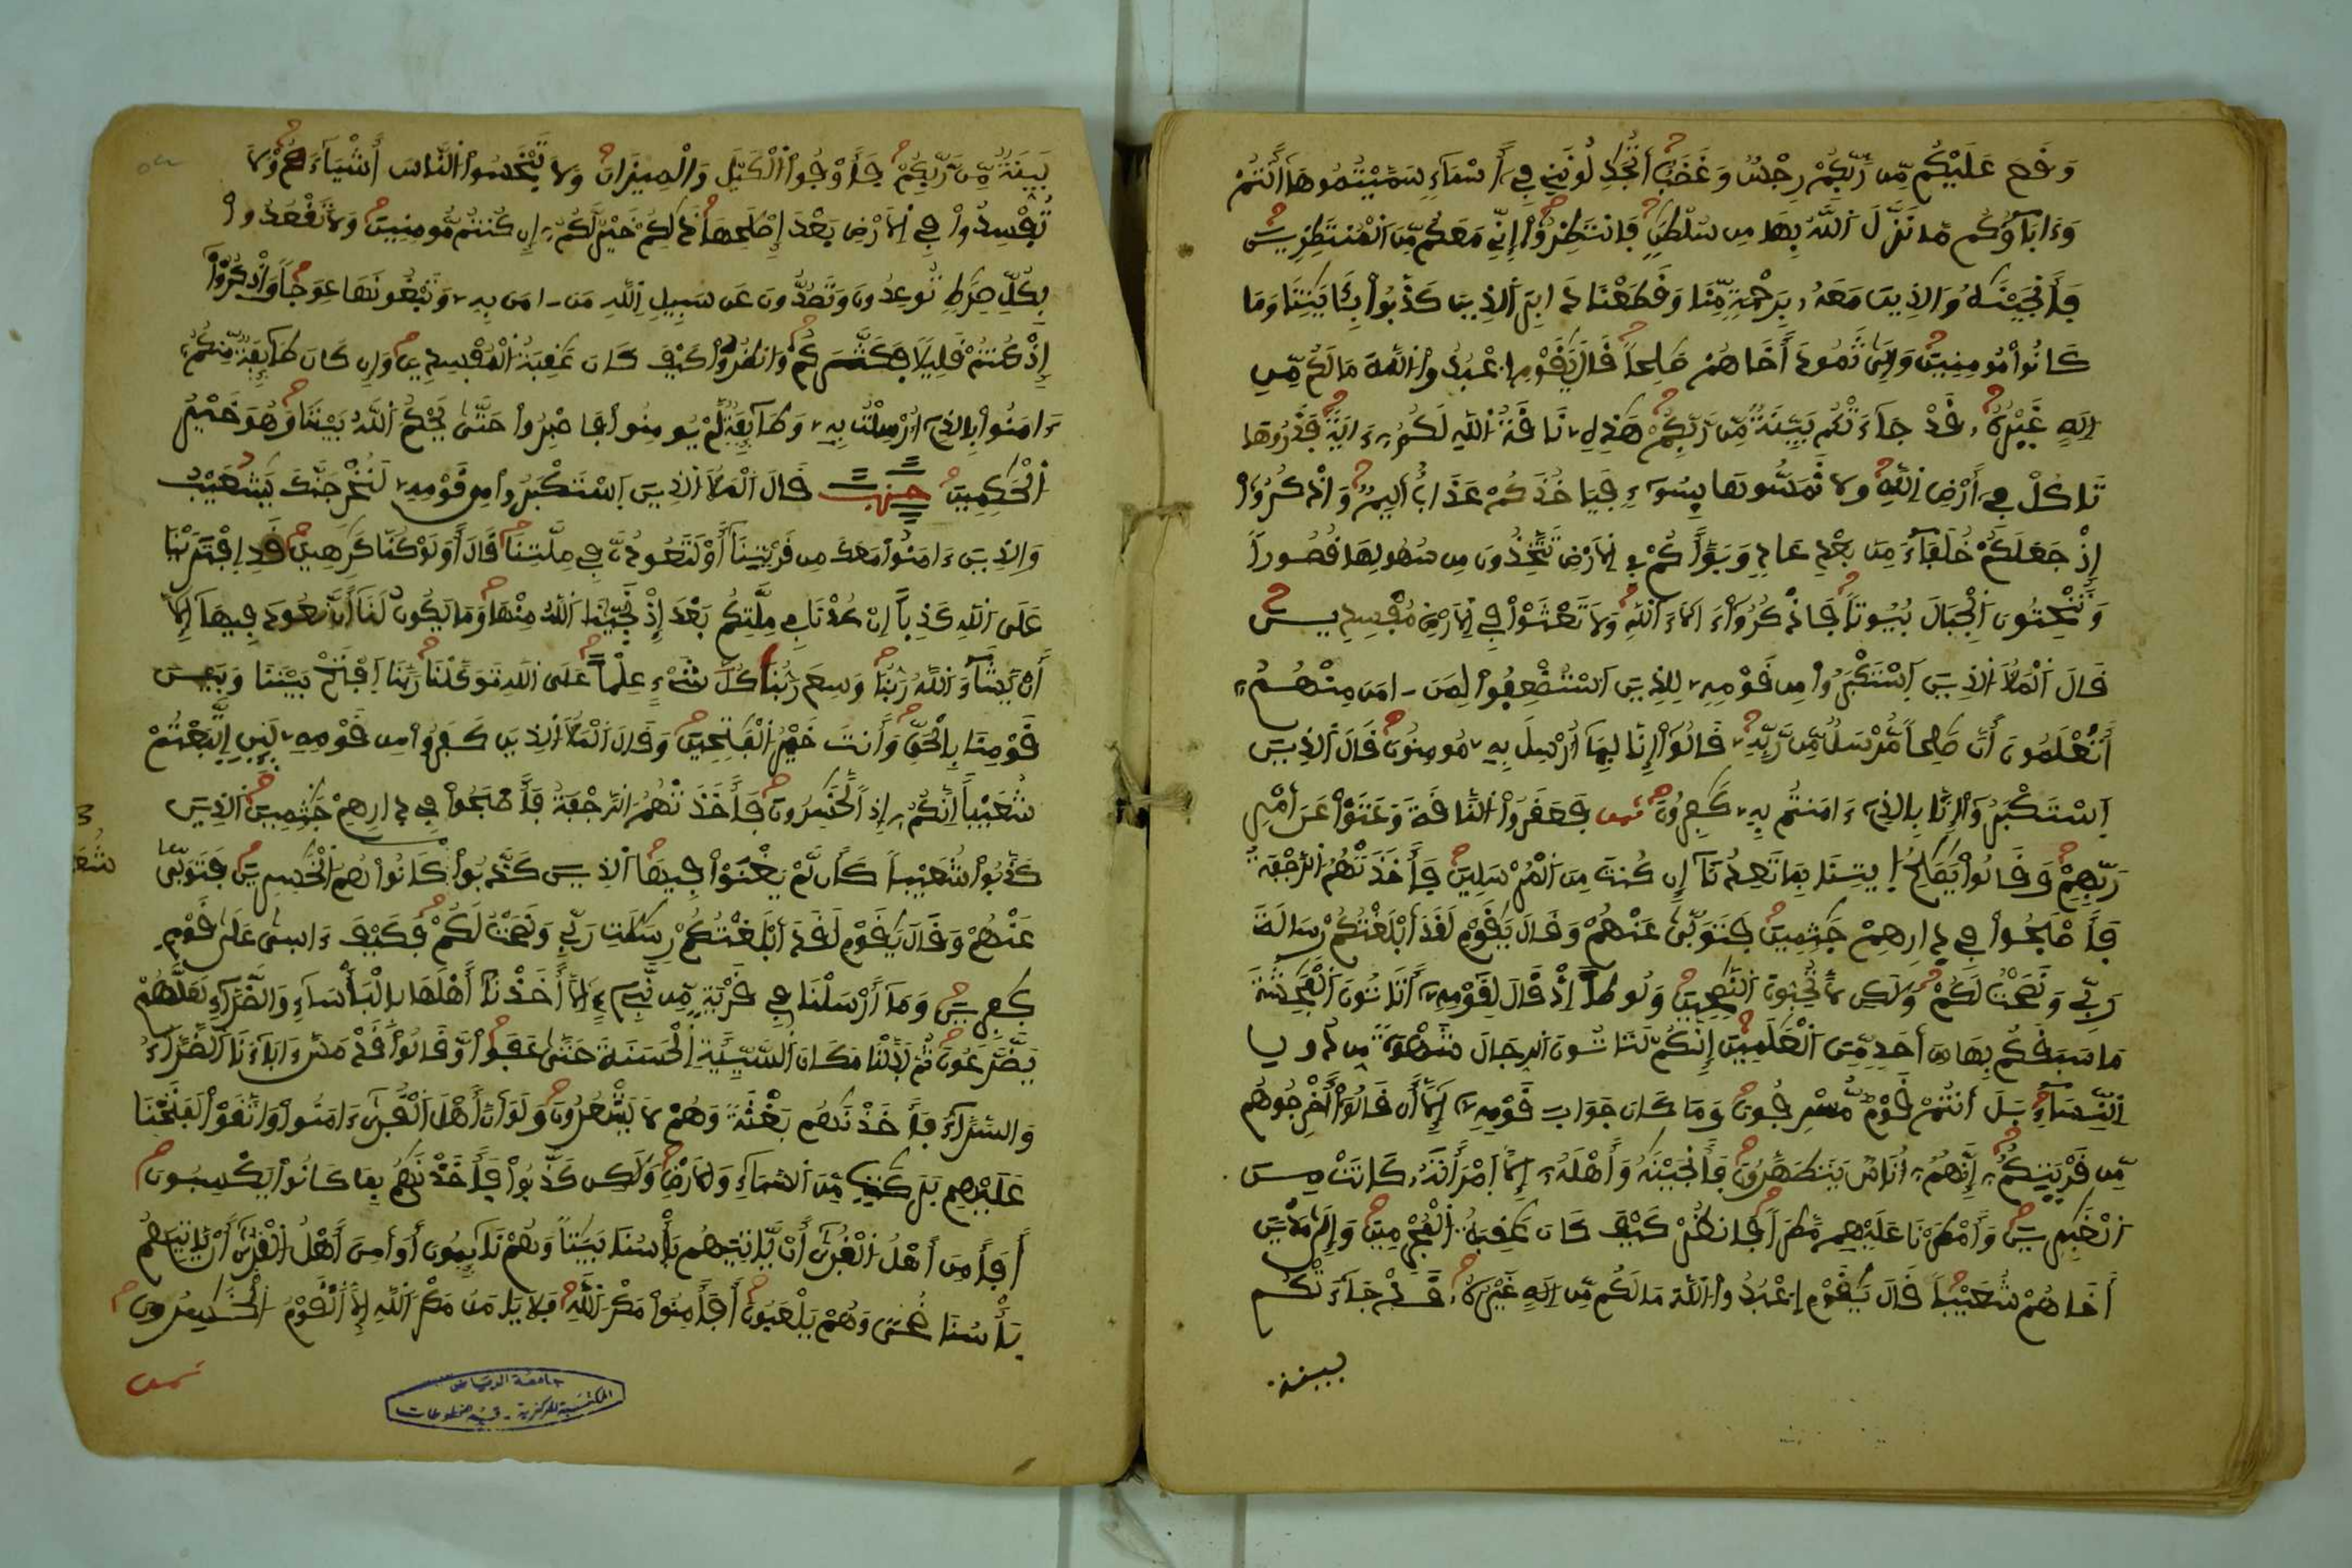 وَقَعَ عَلَيْكُم مِّن رَّبِّكُمْ رِجْسٌ وَغَضَبٌ أَتُجَٰدِلُونَنِي فِي أَسْمَاءٍ سَمَّيْتُمُوهَا أَنتُمْ
وَءَابَاؤُكُم مَّا نَزَّلَ اَللَّهُ بِهَا مِن سُلْطَٰنٍ فَانتَظِرُوا إِنِّي مَعَكُم مِّنَ اَلْمُنتَظِرِينَ
فَأَنجَيْنَٰهُ وَالذِينَ مَعَهُ بِرَحْمَةٍ مِّنَّا وَقَطَعْنَا دَابِرَ اَلذِينَ كَذَّبُوا بِـَٔايَٰتِنَا وَمَا
كَانُوا مُومِنِينَ وَإِلَىٰ ثَمُودَ أَخَاهُمْ صَٰلِحاً قَالَ يَٰقَوْمِ اِعْبُدُوا اَللَّهَ مَا لَكُم مِّنِ
اِلَٰهٍ غَيْرُهُ قَدْ جَاءَتْكُم بَيِّنَةٌ مِّن رَّبِّكُمْ هَٰذِهِ نَاقَةُ اُللَّهِ لَكُمْ ءَايَةً فَذَرُوهَا
تَاكُلْ فِي أَرْضِ اِللَّهِ وَلَا تَمَسُّوهَا بِسُوءٍ فَيَاخُذَكُمْ عَذَابٌ اَلِيمٌ وَاذْكُرُوا
إِذْ جَعَلَكُمْ خُلَفَاءَ مِن بَعْدِ عَادٍ وَبَوَّأَكُمْ فِي اِلَارْضِ تَتَّخِذُونَ مِن سُهُولِهَا قُصُوراً
وَتَنْحِتُونَ اَلْجِبَالَ بُيُوتاً فَاذْكُرُوا ءَالَاءَ اَللَّهِ وَلَا تَعْثَوْا فِي اِلَارْضِ مُفْسِدِينَ
قَالَ اَلْمَلَأُ اُلذِينَ اَسْتَكْبَرُوا مِن قَوْمِهِ لِلذِينَ اَسْتُضْعِفُوا لِمَنَ ـامَنَ مِنْهُمُ
أَتَعْلَمُونَ أَنَّ صَٰلِحاً مُّرْسَلٌ مِّن رَّبِّهِ قَالُوا إِنَّا بِمَا أُرْسِلَ بِهِ مُومِنُونَ قَالَ اَلذِينَ
اَسْتَكْبَرُوا إِنَّا بِالذِي ءَامَنتُم بِهِ كَٰفِرُونَ ثمن فَعَقَرُوا اُلنَّاقَةَ وَعَتَوْا عَنَ اَمْرِ
رَبِّهِمْ وَقَالُوا يَٰصَٰلِحُ اُيتِنَا بِمَا تَعِدُنَا إِن كُنتَ مِنَ اَلْمُرْسَلِينَ فَأَخَذَتْهُمُ اُلرَّجْفَةُ
فَأَصْبَحُوا فِي دِارِهِمْ جَٰثِمِينَ فَتَوَلَّىٰ عَنْهُمْ وَقَالَ يَٰقَوْمِ لَقَدَ اَبْلَغْتُكُمْ رِسَالَةَ
رَبِّي وَنَصَحْتُ لَكُمْ وَلَٰكِن لَّا تُحِبُّونَ اَلنَّٰصِحِينَ وَلُوطاً إِذْ قَالَ لِقَوْمِهِ أَتَاتُونَ اَلْفَٰحِشَةَ
مَا سَبَقَكُم بِهَا مِنَ اَحَدٍ مِّنَ اَلْعَٰلَمِينَ إِنَّكُمْ لَتَاتُونَ اَلرِّجَالَ شَهْوَةً مِّن دُونِ
اِلنِّسَاءِ بَلَ اَنتُمْ قَوْمٌ مُّسْرِفُونَ وَمَا كَانَ جَوَابَ قَوْمِهِ إِلَّا أَن قَالُوا أَخْرِجُوهُم
مِّن قَرْيَتِكُمُ إِنَّهُمُ أُنَاسٌ يَتَطَهَّرُونَ فَأَنجَيْنَٰهُ وَأَهْلَهُ إِلَّا اَمْرَأَتَهُ كَانَتْ مِنَ
اَلْغَٰبِرِينَ وَأَمْطَرْنَا عَلَيْهِم مَّطَراً فَانظُرْ كَيْفَ كَانَ عَٰقِبَةُ اُلْمُجْرِمِينَ وَإِلَىٰ مَدْيَنَ
أَخَاهُمْ شُعَيْباً قَالَ يَٰقَوْمِ اِعْبُدُوا اَللَّهَ مَا لَكُم مِّنِ اِلَٰهٍ غَيْرُهُ قَدْ جَاءَتْكُم
بينة
بَيِّنَةٌ مِّن رَّبِّكُمْ فَأَوْفُوا اُلْكَيْلَ وَالْمِيزَانَ وَلَا تَبْخَسُوا اُلنَّاسَ أَشْيَاءَهُمْ وَلَا
تُفْسِدُوا فِي اِلَارْضِ بَعْدَ إِصْلَٰحِهَا ذَٰلِكُمْ خَيْرٌ لَّكُمُ إِن كُنتُم مُّومِنِينَ وَلَا تَقْعُدُوا
بِكُلِّ صِرَٰطٍ تُوعِدُونَ وَتَصُدُّونَ عَن سَبِيلِ اِللَّهِ مَنَ ـامَنَ بِهِ وَتَبْغُونَهَا عِوَجاً وَاذْكُرُوا
إِذْ كُنتُمْ قَلِيلاً فَكَثَّرَكُمْ وَانظُرُوا كَيْفَ كَانَ عَٰقِبَةُ اُلْمُفْسِدِينَ وَإِن كَانَ طَائِفَةٌ مِّنكُمُ
ءَامَنُوا بِالذِي أُرْسِلْتُ بِهِ وَطَائِفَةٌ لَّمْ يُومِنُوا فَاصْبِرُوا حَتَّىٰ يَحْكُمَ اَللَّهُ بَيْنَنَا وَهُوَ خَيْرُ
اُلْحَٰكِمِينَ حزب قَالَ اَلْمَلَأُ اُلذِينَ اَسْتَكْبَرُوا مِن قَوْمِهِ لَنُخْرِجَنَّكَ يَٰشُعَيْبُ
وَالذِينَ ءَامَنُوا مَعَكَ مِن قَرْيَتِنَا أَوْ لَتَعُودُنَّ فِي مِلَّتِنَا قَالَ أَوَلَوْ كُنَّا كَٰرِهِينَ قَدِ اِفْتَرَيْنَا
عَلَى اَللَّهِ كَذِباً اِنْ عُدْنَا فِي مِلَّتِكُم بَعْدَ إِذْ نَجَّىٰنَا اَللَّهُ مِنْهَا وَمَا يَكُونُ لَنَا أَن نَّعُودَ فِيهَا إِلَّا
أَنْ يَّشَاءَ اَللَّهُ رَبُّنَا وَسِعَ رَبُّنَا كُلَّ شَيْءٍ عِلْماً عَلَى اَللَّهِ تَوَكَّلْنَا رَبَّنَا اَفْتَحْ بَيْنَنَا وَبَيْنَ
قَوْمِنَا بِالْحَقِّ وَأَنتَ خَيْرُ اُلْفَٰتِحِينَ وَقَالَ اَلْمَلَأُ اُلذِينَ كَفَرُوا مِن قَوْمِهِ لَئِنِ اِتَّبَعْتُمْ
شُعَيْباً اِنَّكُمُ إِذاً لَّخَٰسِرُونَ فَأَخَذَتْهُمُ اُلرَّجْفَةُ فَأَصْبَحُوا فِي دِارِهِمْ جَٰثِمِينَ اَلذِينَ
كَذَّبُوا شُعَيْباً كَأَن لَّمْ يَغْنَوْا فِيهَا اَلذِينَ كَذَّبُوا كَانُوا هُمُ اُلْخَٰسِرِينَ فَتَوَلَّىٰ
عَنْهُمْ وَقَالَ يَٰقَوْمِ لَقَدَ اَبْلَغْتُكُمْ رِسَٰلَٰتِ رَبِّي وَنَصَحْتُ لَكُمْ فَكَيْفَ ءَاسَىٰ عَلَىٰ قَوْمٍ
كَٰفِرِينَ وَمَا أَرْسَلْنَا فِي قَرْيَةٍ مِّن نَّبِيءٍ إِلَّا أَخَذْنَا أَهْلَهَا بِالْبَأْسَاءِ وَالضَّرَّاءِ لَعَلَّهُمْ
يَضَّرَّعُونَ ثُمَّ بَدَّلْنَا مَكَانَ اَلسَّيِّئَةِ اِلْحَسَنَةَ حَتَّىٰ عَفَوا وَّقَالُوا قَدْ مَسَّ ءَابَاءَنَا اَلضَّرَّاءُ
وَالسَّرَّاءُ فَأَخَذْنَٰهُم بَغْتَةً وَهُمْ لَا يَشْعُرُونَ وَلَوَ اَنَّ أَهْلَ اَلْقُرَىٰ ءَامَنُوا وَاتَّقَوْا لَفَتَحْنَا
عَلَيْهِم بَرَكَٰتٍ مِّنَ اَلسَّمَاءِ وَالَارْضِ وَلَٰكِن كَذَّبُوا فَأَخَذْنَٰهُم بِمَا كَانُوا يَكْسِبُونَ
أَفَأَمِنَ أَهْلُ اُلْقُرَىٰ أَنْ يَّاتِيَهُم بَأْسُنَا بَيَٰتاً وَهُمْ نَائِمُونَ أَوَ اَمِنَ أَهْلُ اُلْقُرَىٰ أَنْ يَّاتِيَهُم
بَأْسُنَا ضُحىً وَهُمْ يَلْعَبُونَ أَفَأَمِنُوا مَكْرَ اَللَّهِ فَلَا يَامَنُ مَكْرَ اَللَّهِ إِلَّا اَلْقَوْمُ اُلْخَٰسِرُونَ
ثمن
جامعة الرياض
المكتبة المركزية - قسم المخطوطات